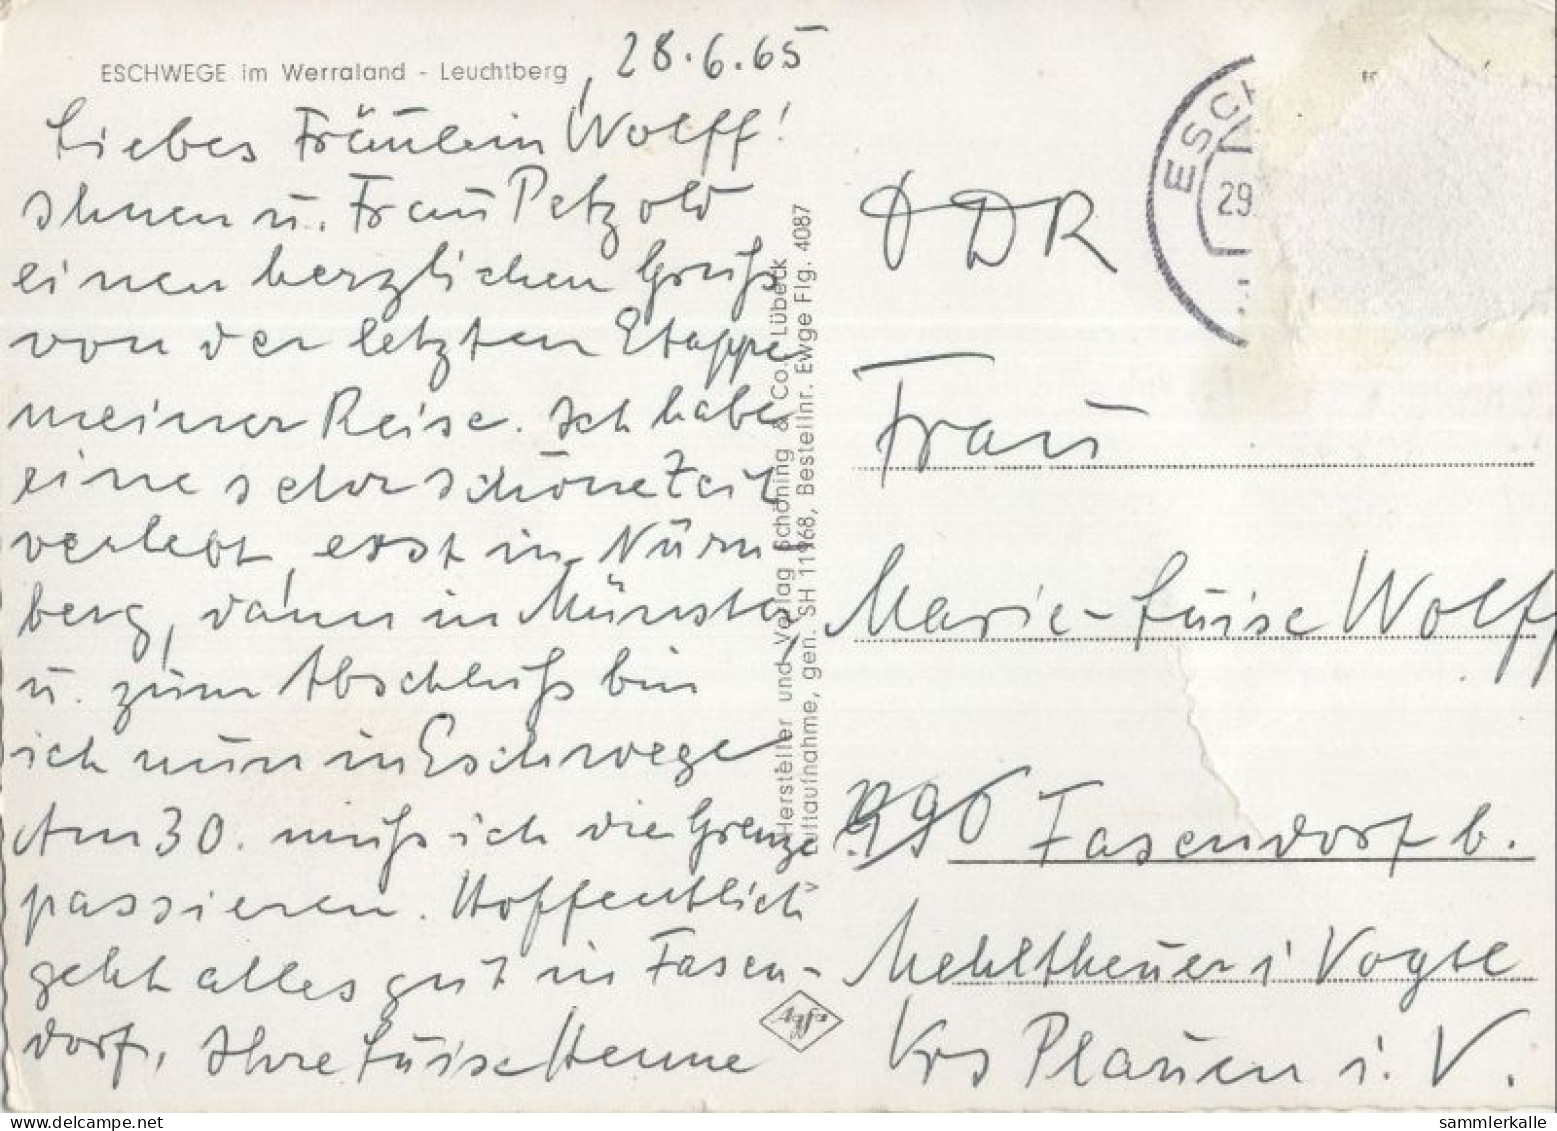 ESCHWEGE im Werraland - Leuchtberg
28.6.65
Liebes Fräulein Wolff!
Ihnen u. Frau Petzold
einen herzlichen Gruß
von der letzten Etappe
meiner Reise. Ich habe
eine sehr schöne Zeit
verlebt, erst in Nürn-
berg, dann in Münster,
u. zum Abschluß bin
ich nun in Eschwege
Am 30. muß ich die Grenze
passieren. Hoffentlich
geht alles gut in Fasen-
dorf, Ihre Luise Henne
Hersteller und Verlag Schöning & Co., Lübeck
Luftaufnahme, gen. SH 11968, Bestellnr. Ewge Flg. 4087
Agfa
ESCH
29
DDR
Frau
Marie-Luise Wolff
9906 Fasendorf b.
Mehltheuer i Vogtl
Krs Plauen i. V.
sammlerkalle